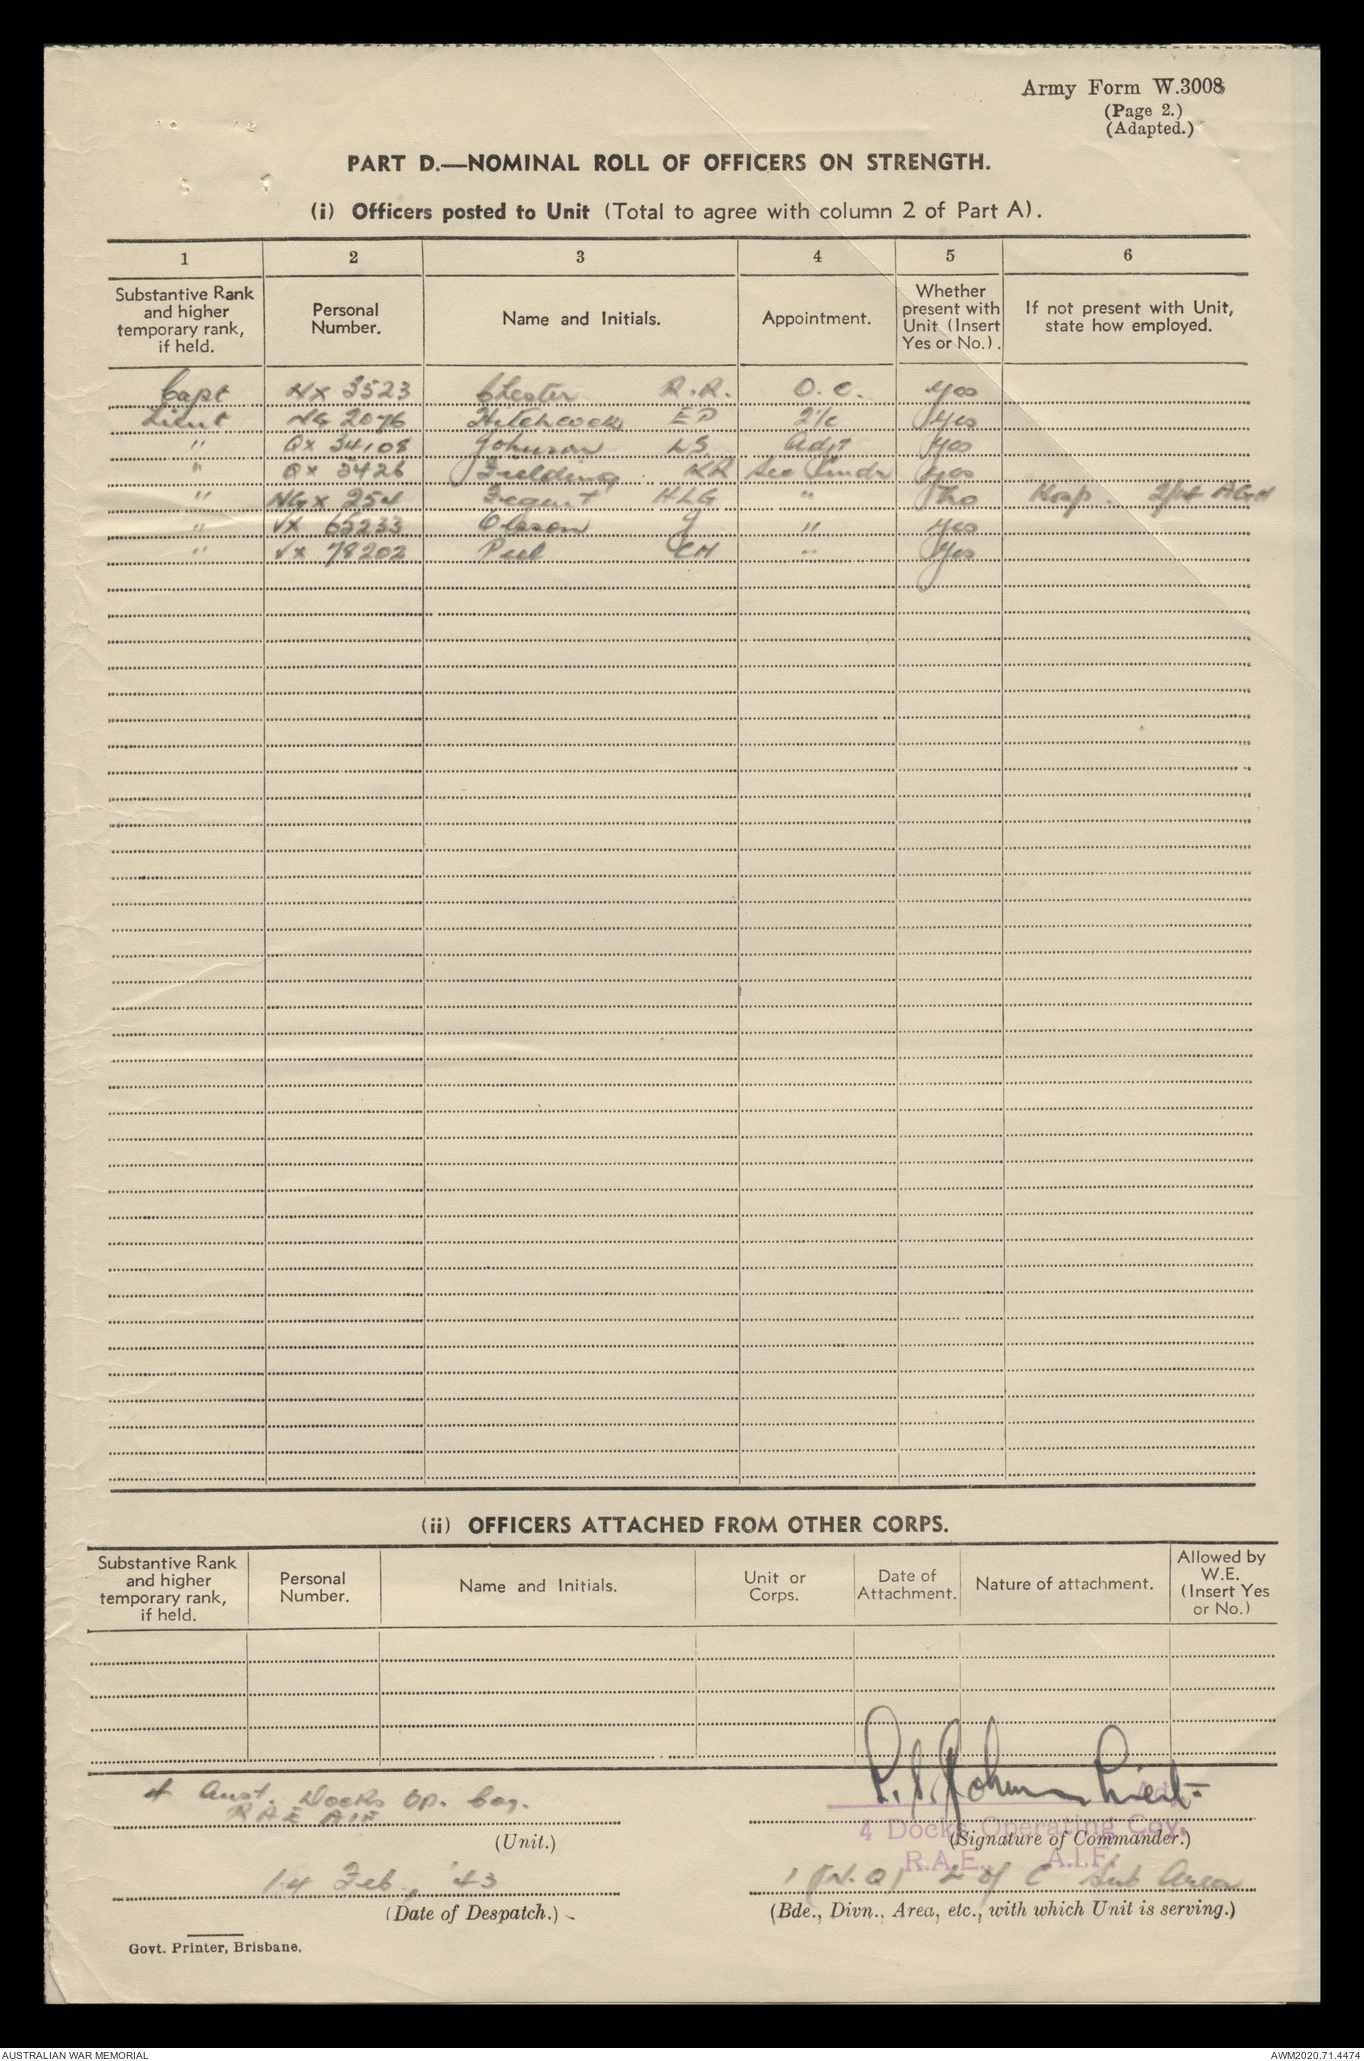 Army Form W.3008
(Page 2.)
(Adapted.)
PART D.—NOMINAL ROLL OF OFFICERS ON STRENGTH.
(i) Officers posted to Unit (Total to agree with column 2 of Part A).
1 2 3 4 5 6
Substantive Rank and higher temporary rank, if held. Personal Number. Name and Initials. Appointment. Whether present with Unit (Insert Yes or No.). If not present with Unit, state how employed.
Capt NX 3523 Chester R.R. O.C. Yes
Lieut NG 2076 Hitchcock EP 2/c Yes
" QX 34108 Johnson LS Adjt Yes
" QX 3426 Fielding KR Sec Comdr Yes
" NGX 254 HLG " No Hosp 2/14 AGH
" VX 65233 Olsson J " Yes
" VX 78202 Peel CH " Yes
(ii) OFFICERS ATTACHED FROM OTHER CORPS.
Substantive Rank and higher temporary rank, if held. Personal Number. Name and Initials. Unit or Corps. Date of Attachment. Nature of attachment. Allowed by W.E. (Insert Yes or No.)
4 Aust. Docks Op. Coy.
RAE AIF
(Unit.)
L.S. Johnson Lieut
Adj.
4 Docks Operating Coy.
(Signature of Commander.)
R.A.E., A.I.F.
14 Feb, '43
(Date of Despatch.)
1 (N.Q) L of C Sub Area
(Bde., Divn., Area, etc., with which Unit is serving.)
Govt. Printer, Brisbane.
AUSTRALIAN WAR MEMORIAL
AWM2020.71.4474